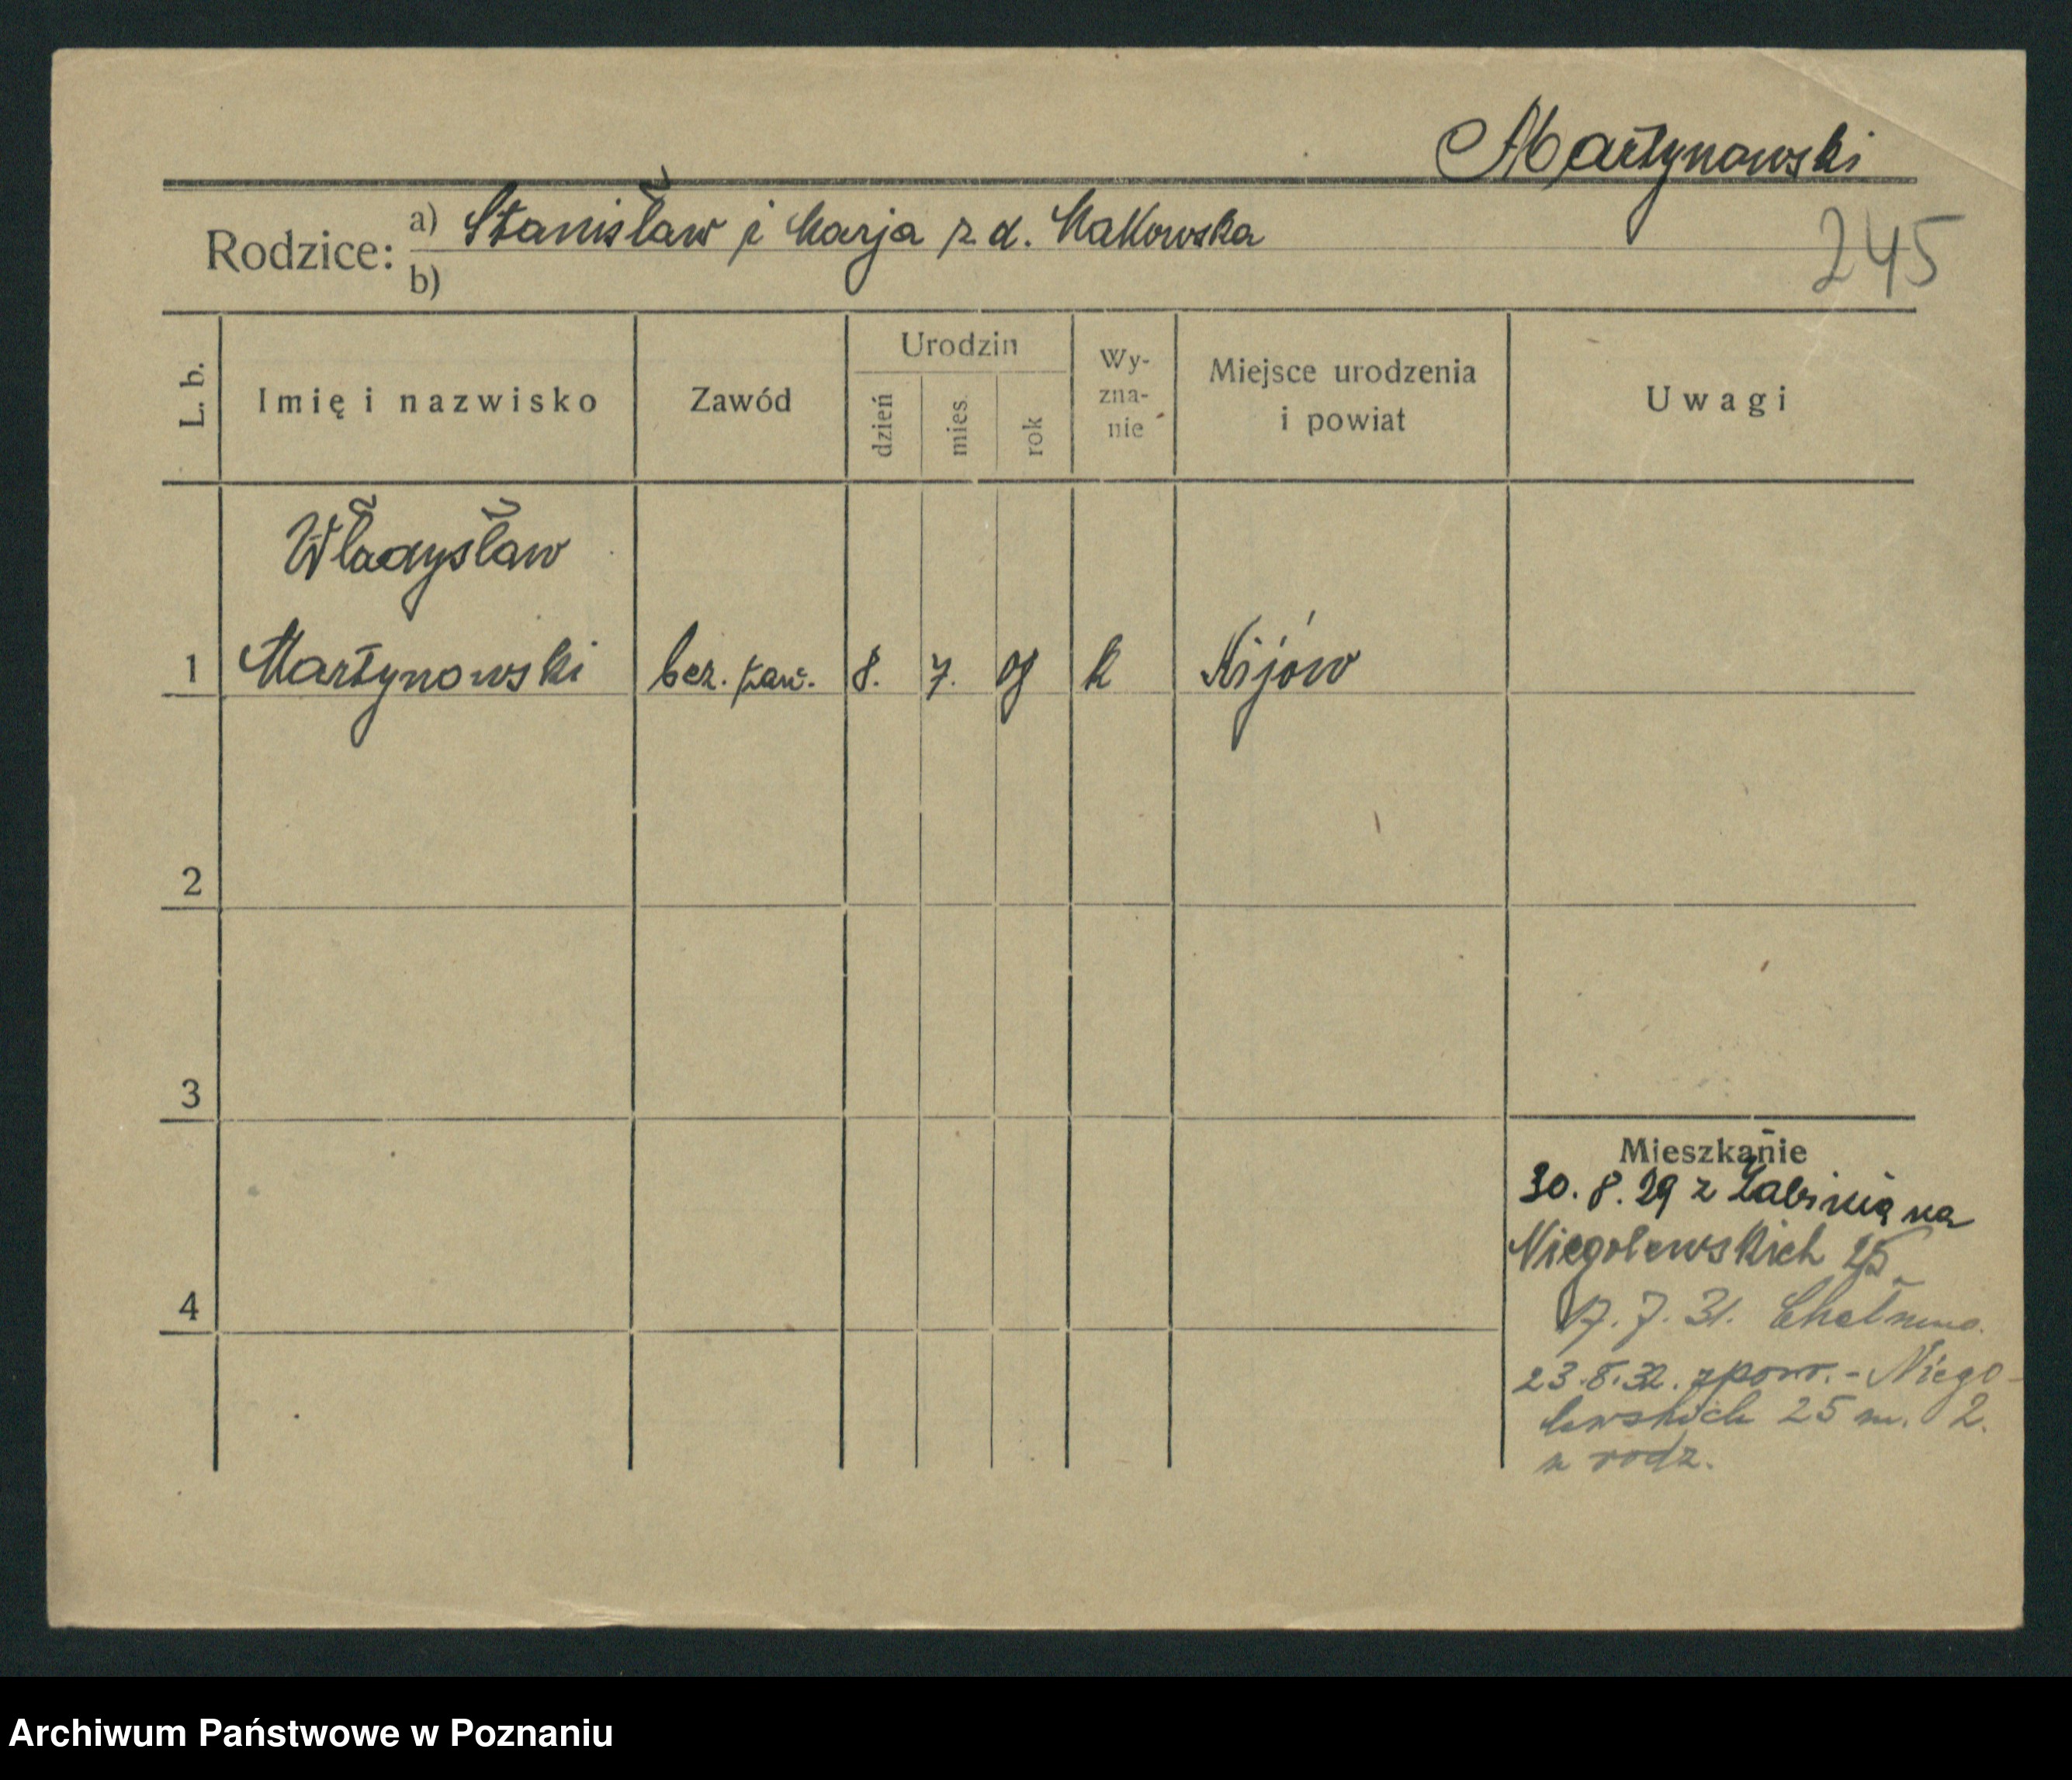 Martynowski
245
Rodzice: a) Stanisław i Marja z d. Makowska
b)
L. b. Imię i nazwisko Zawód Urodzin dzień mies. rok Wy-zna-nie Miejsce urodzenia i powiat Uwagi
Władysław
1 Martynowski bez. zaw. 8. 7. 08 k Kijów
2
3
Mieszkanie
30.8.29 z na
Niegolewskich 25
4
17.7.31. Chełmno.
23.8.32. zpow. - Niego-
lewskich 25 m. 2.
u rodz.
Archiwum Państwowe w Poznaniu